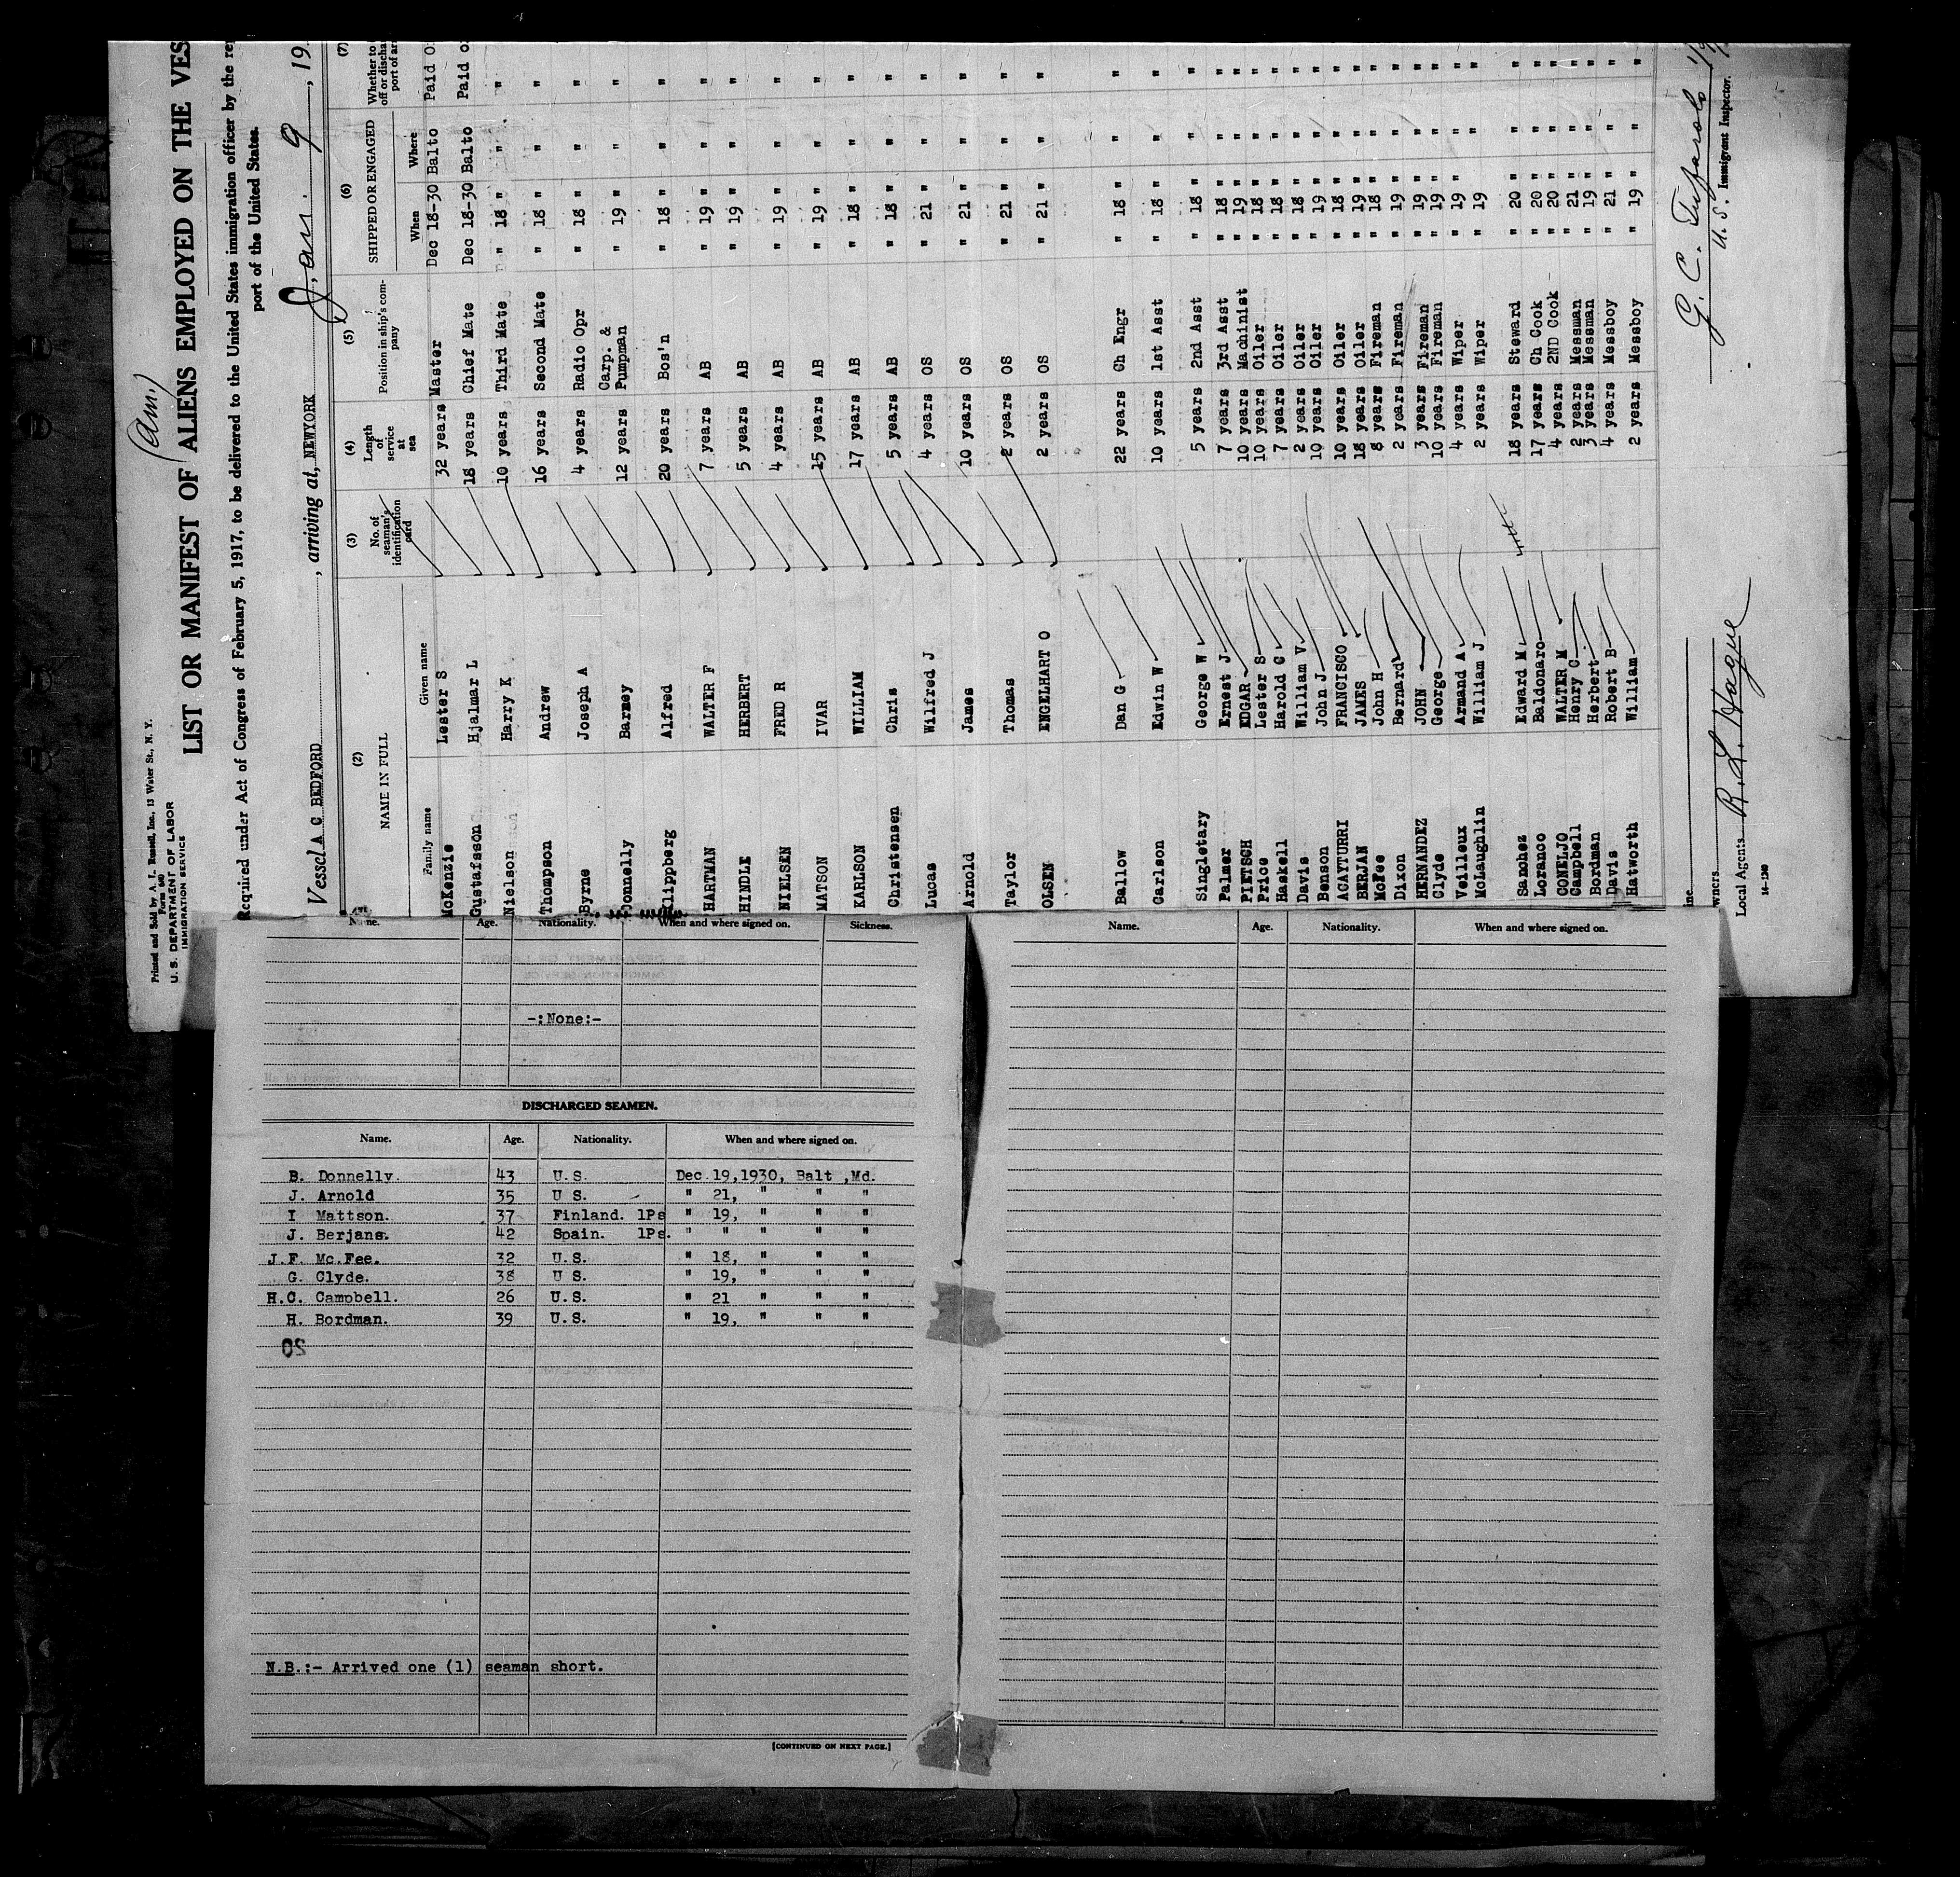 Printed and Sold by A. T. Russell, Inc., 13 Water St., N. Y.
Form 680
U. S. DEPARTMENT OF LABOR
IMMIGRATION SERVICE
(Am.)
LIST OR MANIFEST OF ALIENS EMPLOYED ON THE VES
Required under Act of Congress of February 5, 1917, to be delivered to the United States immigration officer by the re
port of the United States.
Vessel A C BEDFORD, arriving at, NEWYORK Jan. 9, 19
(2) (3) (4) (5) (6) (7)
NAME IN FULL No. of seaman's identification card Length of service at sea Position in ship's company SHIPPED OR ENGAGED Whether to
off or discha
port of ar
Family name Given name When Where
McKenzie Lester S 32 years Master Dec 18-30 Balto Paid O
Gustafsson Hjalmar L 18 years Chief Mate Dec 18-30 Balto Paid o
Nielson Harry K 10 years Third Mate " 18 " " "
Thompson Andrew 16 years Second Mate " 18 " " "
Byrne Joseph A 4 years Radio Opr " 18 " " "
Donnelly Barmey 12 years Carp. & Pumpman " 19 " " "
Klippberg Alfred 20 years Bos'n " 18 " " "
HARTMAN WALTER F 7 years AB " 19 " " "
HINDLE HERBERT 5 years AB " 19 " " "
NIELSEN FRED R 4 years AB " 19 " " "
MATSON IVAR 15 years AB " 19 " " "
KARLSON WILLIAM 17 years AB " 18 " " "
Christensen Chris 5 years AB " 18 " " "
Lucas Wilfred J 4 years OS " 21 " " "
Arnold James 10 years OS " 21 " " "
Taylor Thomas 2 years OS " 21 " " "
OLSEN ENGELHART O 2 years OS " 21 " " "
Ballow Dan G 22 years Ch Engr " 18 " " "
Carlson Edwin W 10 years 1st Asst " 18 " " "
Singletary George W 5 years 2nd Asst " 18 " " "
Palmer Ernest J 7 years 3rd Asst " 18 " " "
PIETSCH EDGAR 10 years Machinist " 19 " " "
Price Lester S 10 years Oiler " 18 " " "
Haskell Harold C 7 years Oiler " 18 " " "
Davis William V 2 years Oiler " 18 " " "
Benson John J 10 years Oiler " 19 " " "
AGAYTURRI FRANCISCO 10 years Oiler " 18 " " "
BERJAN JAMES 18 years Oiler " 19 " " "
McFee John H 8 years Fireman " 18 " " "
Dixon Bernard 2 years Fireman " 19 " " "
HERNANDEZ JOHN 3 years Fireman " 19 " " "
Clyde George 10 years Fireman " 19 " " "
Veilleux Armand A 4 years Wiper " 19 " " "
McLaughlin William J 2 years Wiper " 19 " "
Sanchez Edward M 18 years Steward " 20 " " "
Loranco Baldonaro 17 years Ch Cook " 20 " " "
CONELJO WALTER M 4 years 2ND Cook " 20 " " "
Campbell Henry C 2 years Messman " 21 " " "
Bordman Herbert 3 years Messman " 19 " " "
Davis Robert B 4 years Messboy " 21 " " "
Hatworth William 2 years Messboy " 19 " " "
ine
wners
Local Agents R. L. Hague
14-1240
U. S. Immigrant Inspector.
Name. Age. Nationality. When and where signed on. Sickness.
-:None:-
DISCHARGED SEAMEN.
Name. Age. Nationality. When and where signed on.
B. Donnelly. 43 U.S. Dec 19,1930, Balt ,Md.
J. Arnold 35 U S. " 21, " " "
I Mattson. 37 Finland. 1Ps " 19, " " "
J. Berjans. 42 Spain. 1Ps. " " " " "
J.F. Mc.Fee. 32 U.S. " 18, " " "
G. Clyde. 38 U S. " 19, " " "
H.C. Campbell. 26 U.S. " 21 " " "
H. Bordman. 39 U.S. " 19, " " "
20
N.B.:- Arrived one (1) seaman short.
[CONTINUED ON NEXT PAGE.]
Name. Age. Nationality. When and where signed on.